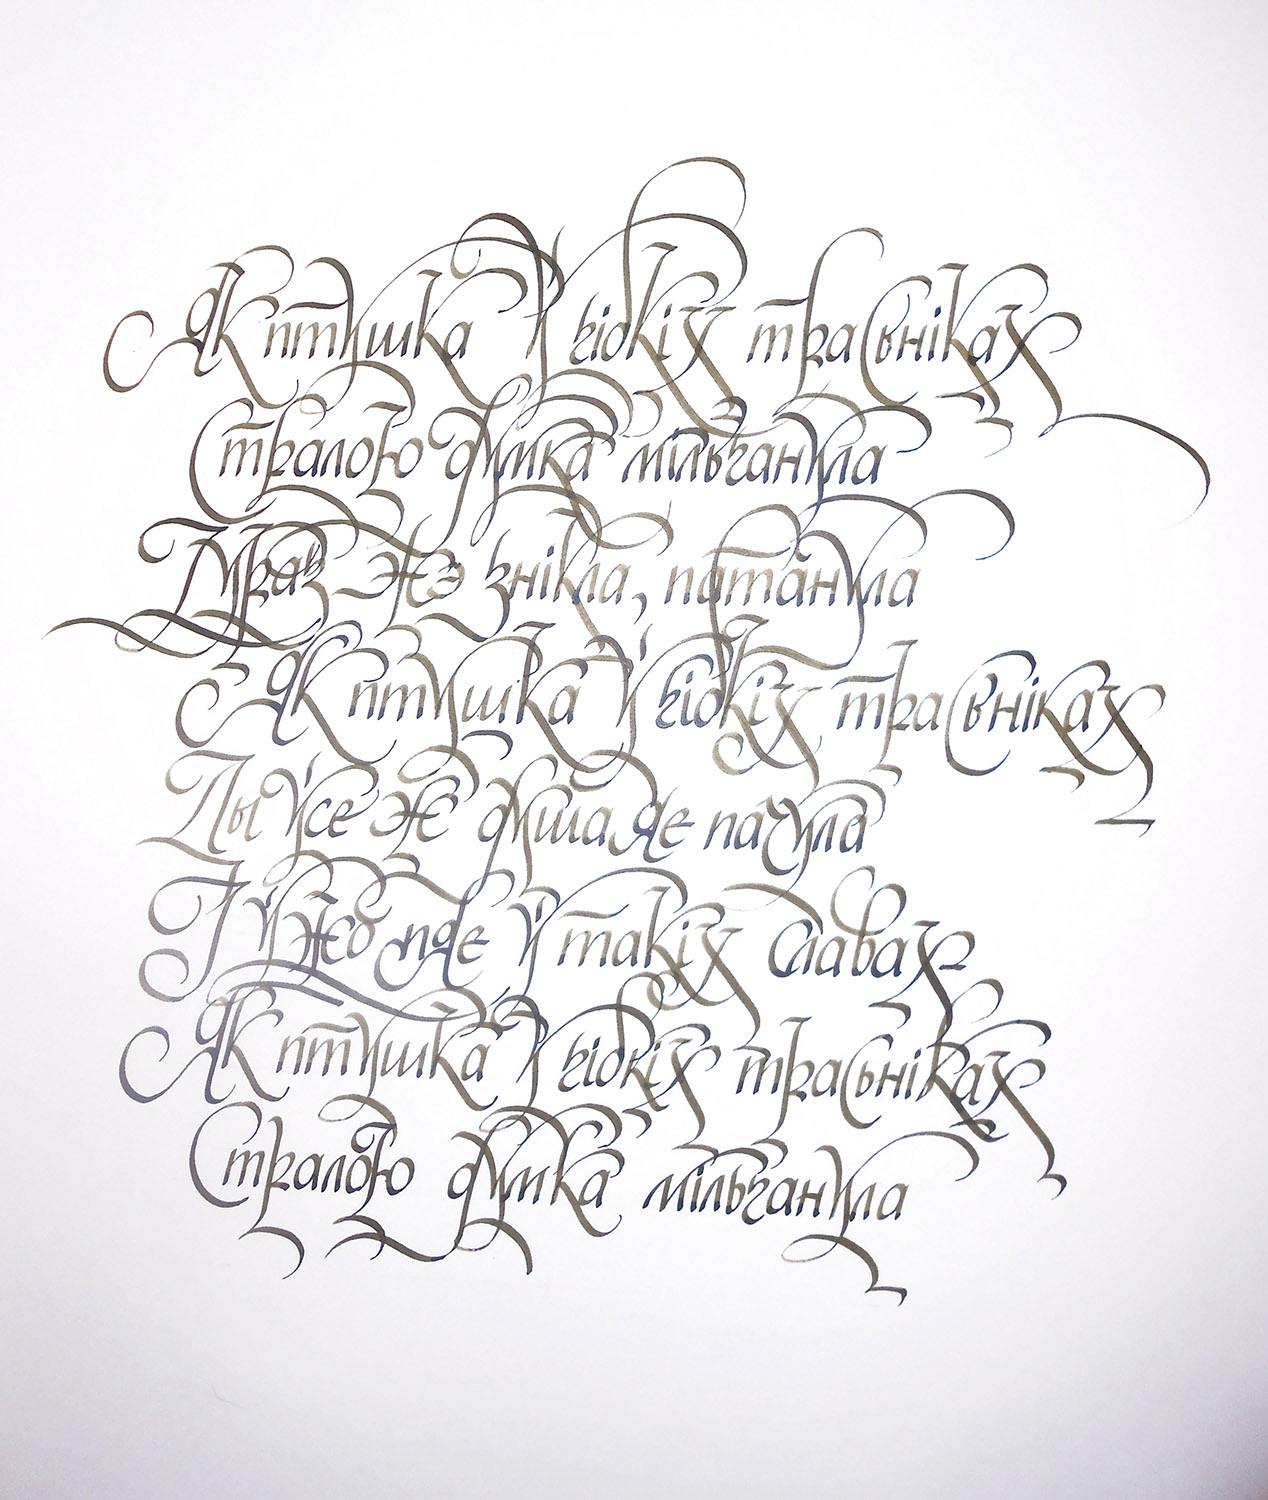 Як птушка ў гібкіх трасьніках
Стралою думка мільганула
Ураз жэ знікла, патанула
Як птушка ў гібкіх трасьніках
Ды ўсе ж душа яе пачула
І ўжо пяе ў такіх славах
Як птушка ў гібкіх трасьніках
Стралою думка мільганула